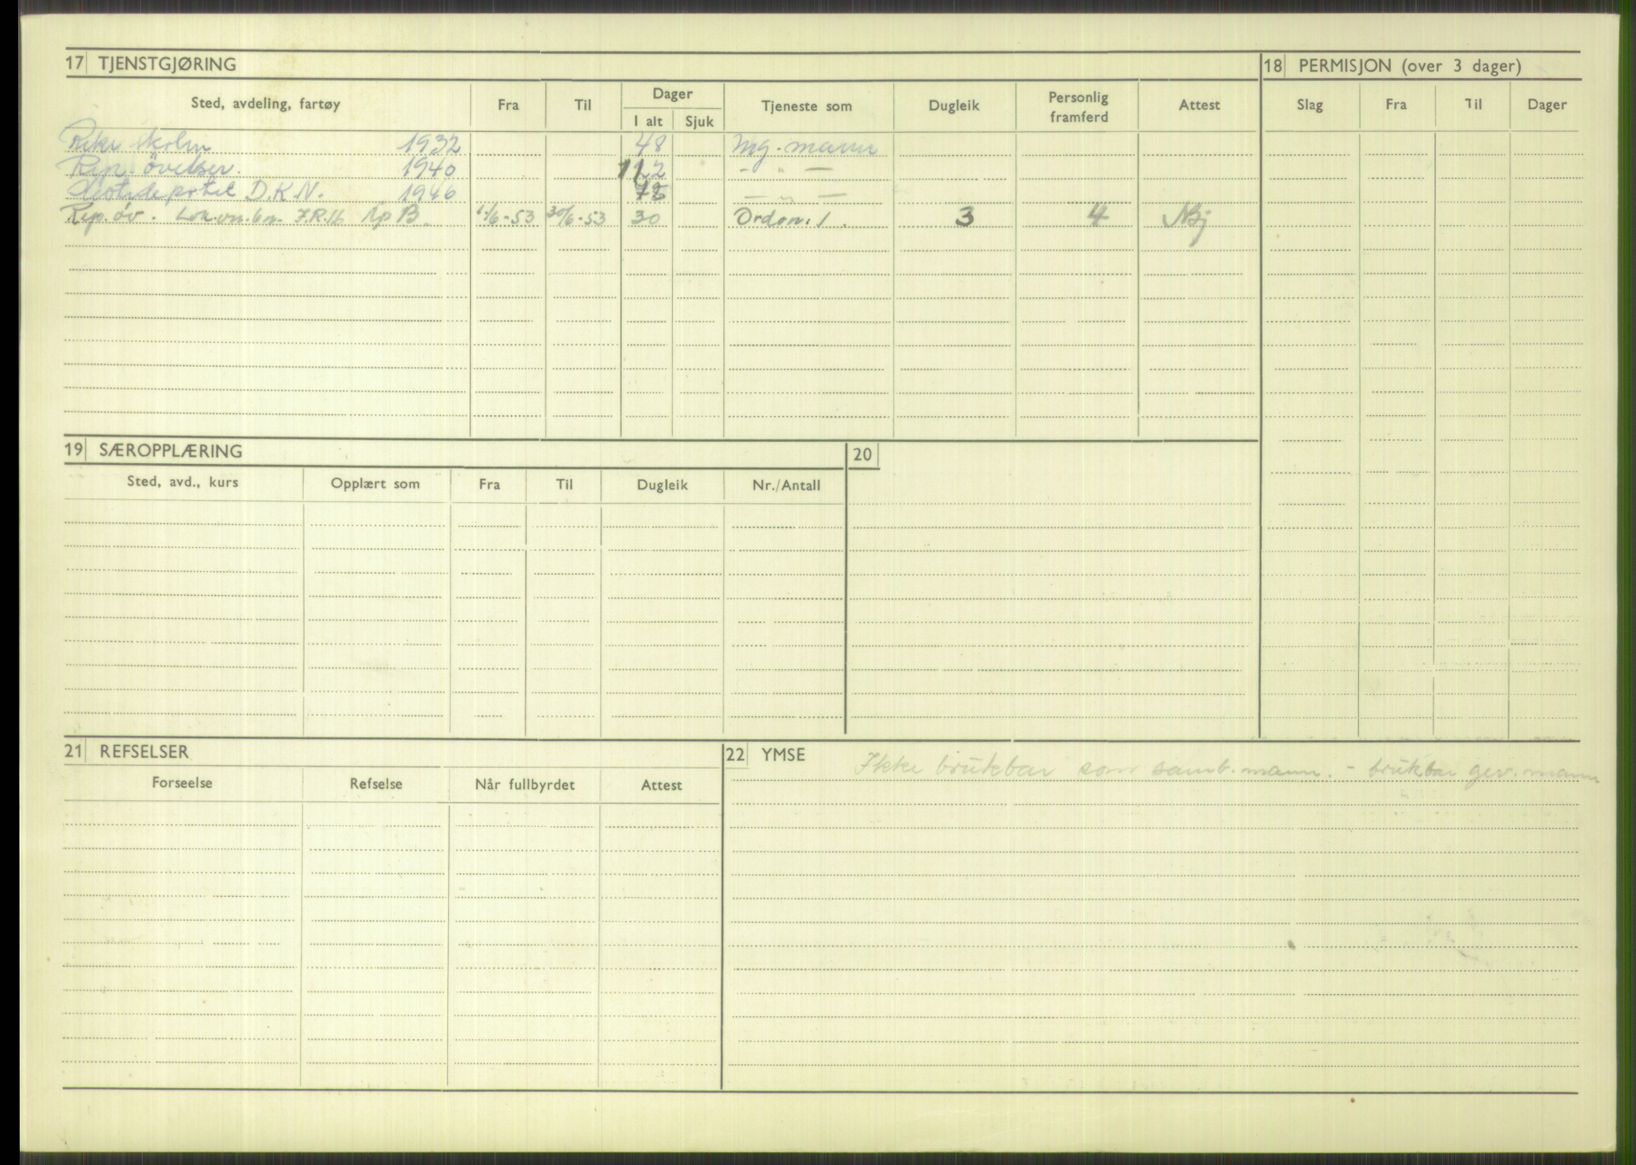 17 TJENSTGJØRING
18 PERMISJON (over 3 dager)
Sted, avdeling, fartøy Fra Til Dager Tjeneste som Dugleik Personlig framferd Attest
I alt Sjuk
Slag Fra Til Dager
1932 48 Mg. mann
Rep. øvelser. 1940 - " -
D.K.N. 1946 - " -
Rep. öv. Lok.vn.bn. I.R.16 Kp B. 1/6-53 30/6-53 30 Ordon. 1. 3 4
19 SÆROPPLÆRING
20
Sted, avd., kurs Opplært som Fra Til Dugleik Nr./Antall
21 REFSELSER
Forseelse Refselse Når fullbyrdet Attest
22 YMSE Ikke brukbar som samb.mann. - brukbar gev.mann